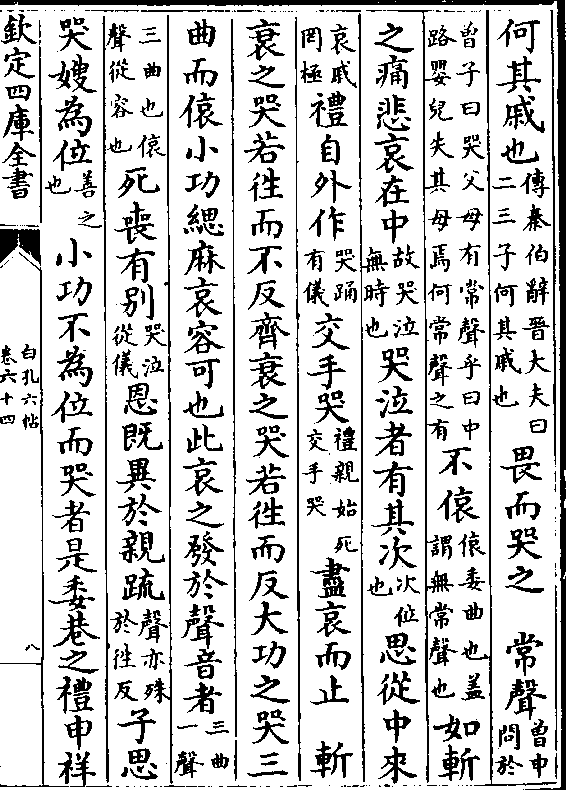 何其戚也傳秦伯辭晉大夫曰二三子何其戚也畏而哭之 常聲曾申問於
曾子曰哭父母有常聲乎曰中路嬰兒失其母焉何常聲之有不偯偯委曲也蓋謂無常聲也如斬
之痛悲哀在中故哭泣無時也哭泣者有其次次位也思從中來
哀戚罔極禮自外作哭踊有儀交手哭禮親始死交手哭盡哀而止 斬
衰之哭若徃而不反齊衰之哭若徃而反大功之哭三
曲而偯小功緦麻哀容可也此哀之發於聲音者三曲一聲
三曲也偯聲從容也死喪有别哭泣從儀恩既異於親疏聲亦殊於徃反子思
哭嫂為位善之也小功不為位而哭者是委巷之禮申祥
欽定四庫全書
白孔六帖
卷六十四
八